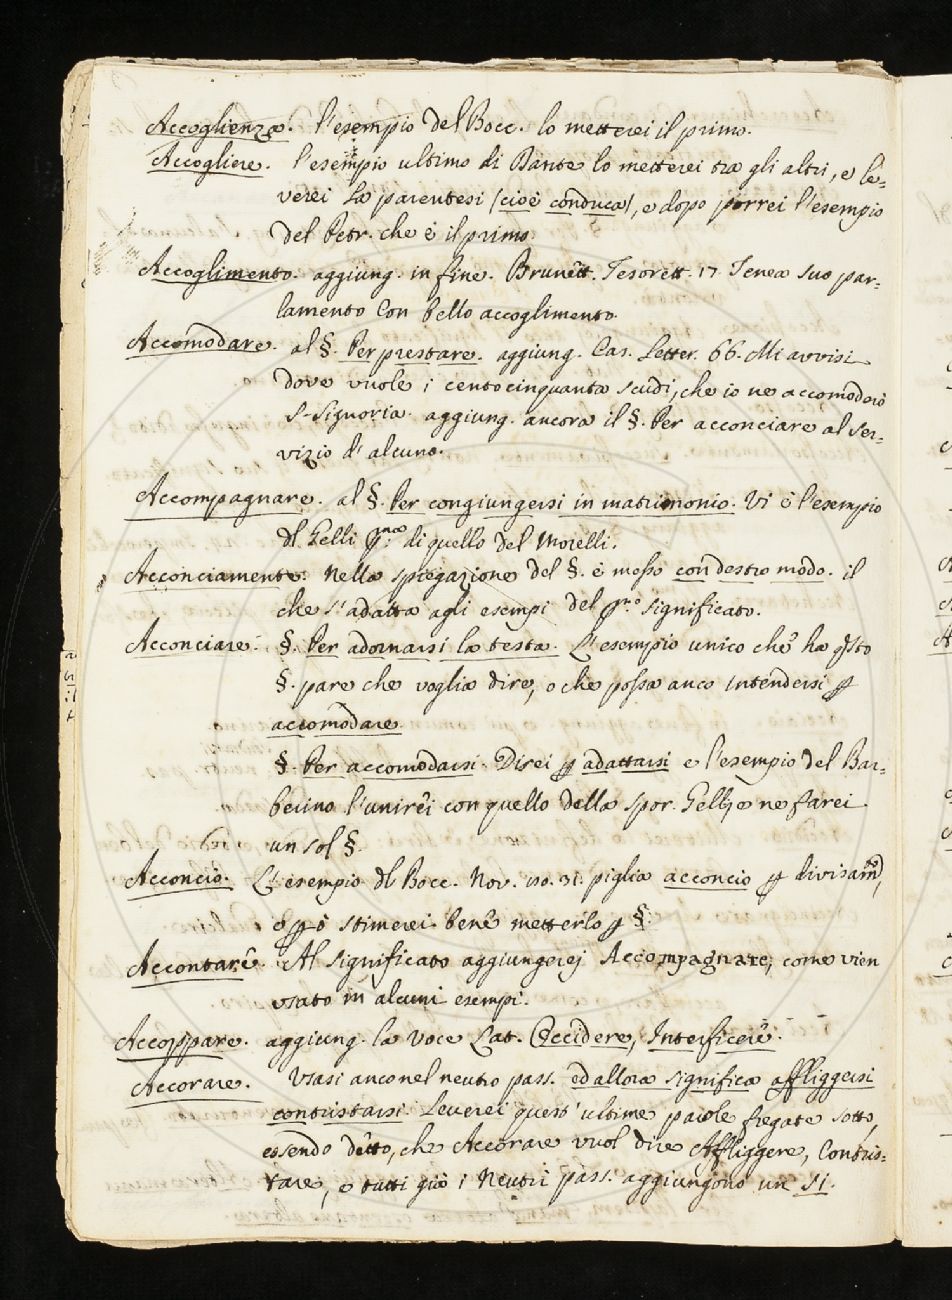 Accoglienza. l'esempio del Bocc. lo metterei il primo.
Accogliere. l'esempio ultimo di Dante lo metterei tra gli altri, e le-
verei la parentesi (cioè conduca), e dopo porrei l'esempio
del Petr. che è il primo.
Accoglimento. aggiung. in fine. Brunett. Tesorett. 17 Tenea suo par-
lamento Con bello accoglimento.
Accomodare. al §. Per prestare. aggiung. Cas. Letter. 66. Mi avvisi
dove vuole i centocinquanta scudi, che io ne accomoderò
S. Signoria. aggiung. ancora il §. Per acconciare al ser-
vizio d'alcuno.
Accompagnare. al §. Per congiungersi in matrimonio. Vi è l'esempio
dl Gelli pma. di quello del Morelli.
Acconciamente. Nella spiegazione del §. è messo con destro modo. il
che s'adatta agli esempi del pro. significato.
Acconciare. §. Per adornarsi la testa. L'esempio unico che ha qsto
§. pare che voglia dire, o che possa anco intendersi p
accomodare.
§. Per accomodarsi. Direi p adattarsi e l'esempio del Bar-
berino l'unirei con quello della Spor. Gell, e ne farei
un sol §.
Acconcio. L'esempio dl Bocc. Nov. 80. 31. piglia acconcio p divisamto,
e pò stimerei bene metterlo p §.
Accontare. Al significato aggiungerej Accompagnare, come vien
usato in alcuni esempi.
Accoppare. aggiung. la voce Lat. Occidere, Interficere.
Accorare. Usasi anco nel neutro pass. ed allora significa affliggersi
contristarsi. Leverei quest'ultime parole fregate sotto,
essendo detto, che Accorare vuol dire Affliggere, Contris-
tare, e tutti già i Neutri pass. aggiungono un si.